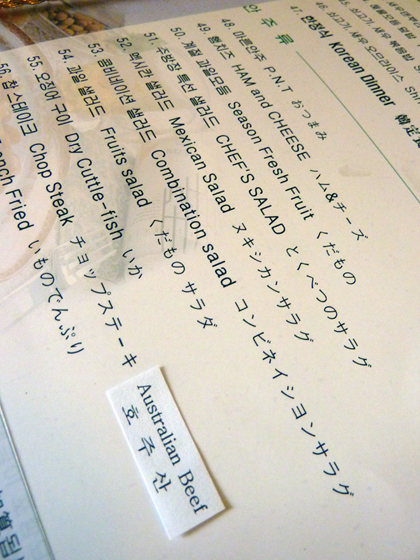 46. 쇠고기, 새우 오므라이스
47. 한정식 Korean Dinner
안 주 류
48. 마른안주 P.N.T おつまみ
49. 햄치즈 HAM and CHEESE ハム&チーズ
50. 계절 과일모듬 Season Fresh Fruit くだもの
51. 주방장 특선 샐러드 CHEF'S SALAD とくべつのサラグ
52. 멕시칸 샐러드 Mexican Salad ヌキシカンサラグ
53. 콤비네이션 샐러드 Combination salad コンビネイションサラグ
54. 과일샐러드 Fruits salad くだもの サラダ
55. 오징어 구이 Dry Cuttle-fish いか
56. 찹스테이크 Chop Steak チョップステーキ
French Fried いものてんぷり
Australian Beef
호 주 산